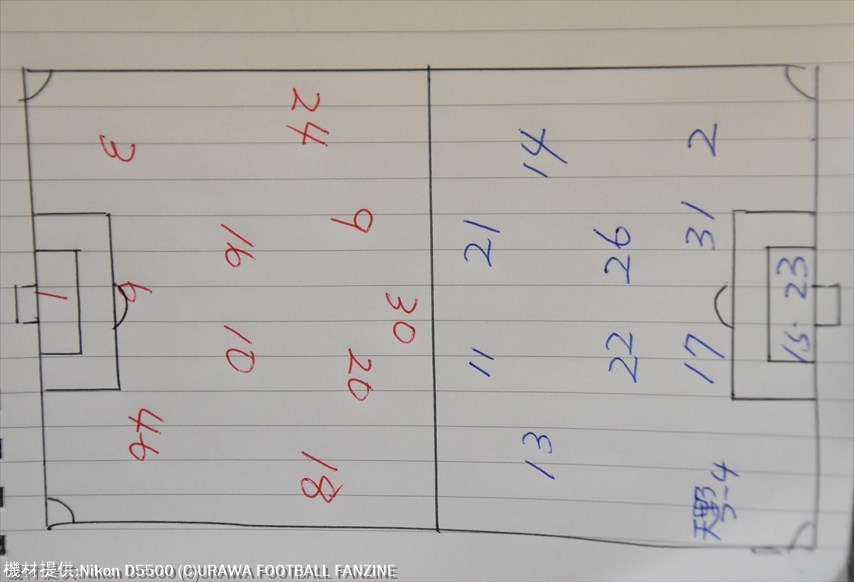 24
3
9
16
1
6
30
10
20
46
18
14
2
21
31
26
23
15
11
22
17
13
天野
5-4
機材提供:Nikon D5500 (C)URAWA FOOTBALL FANZINE